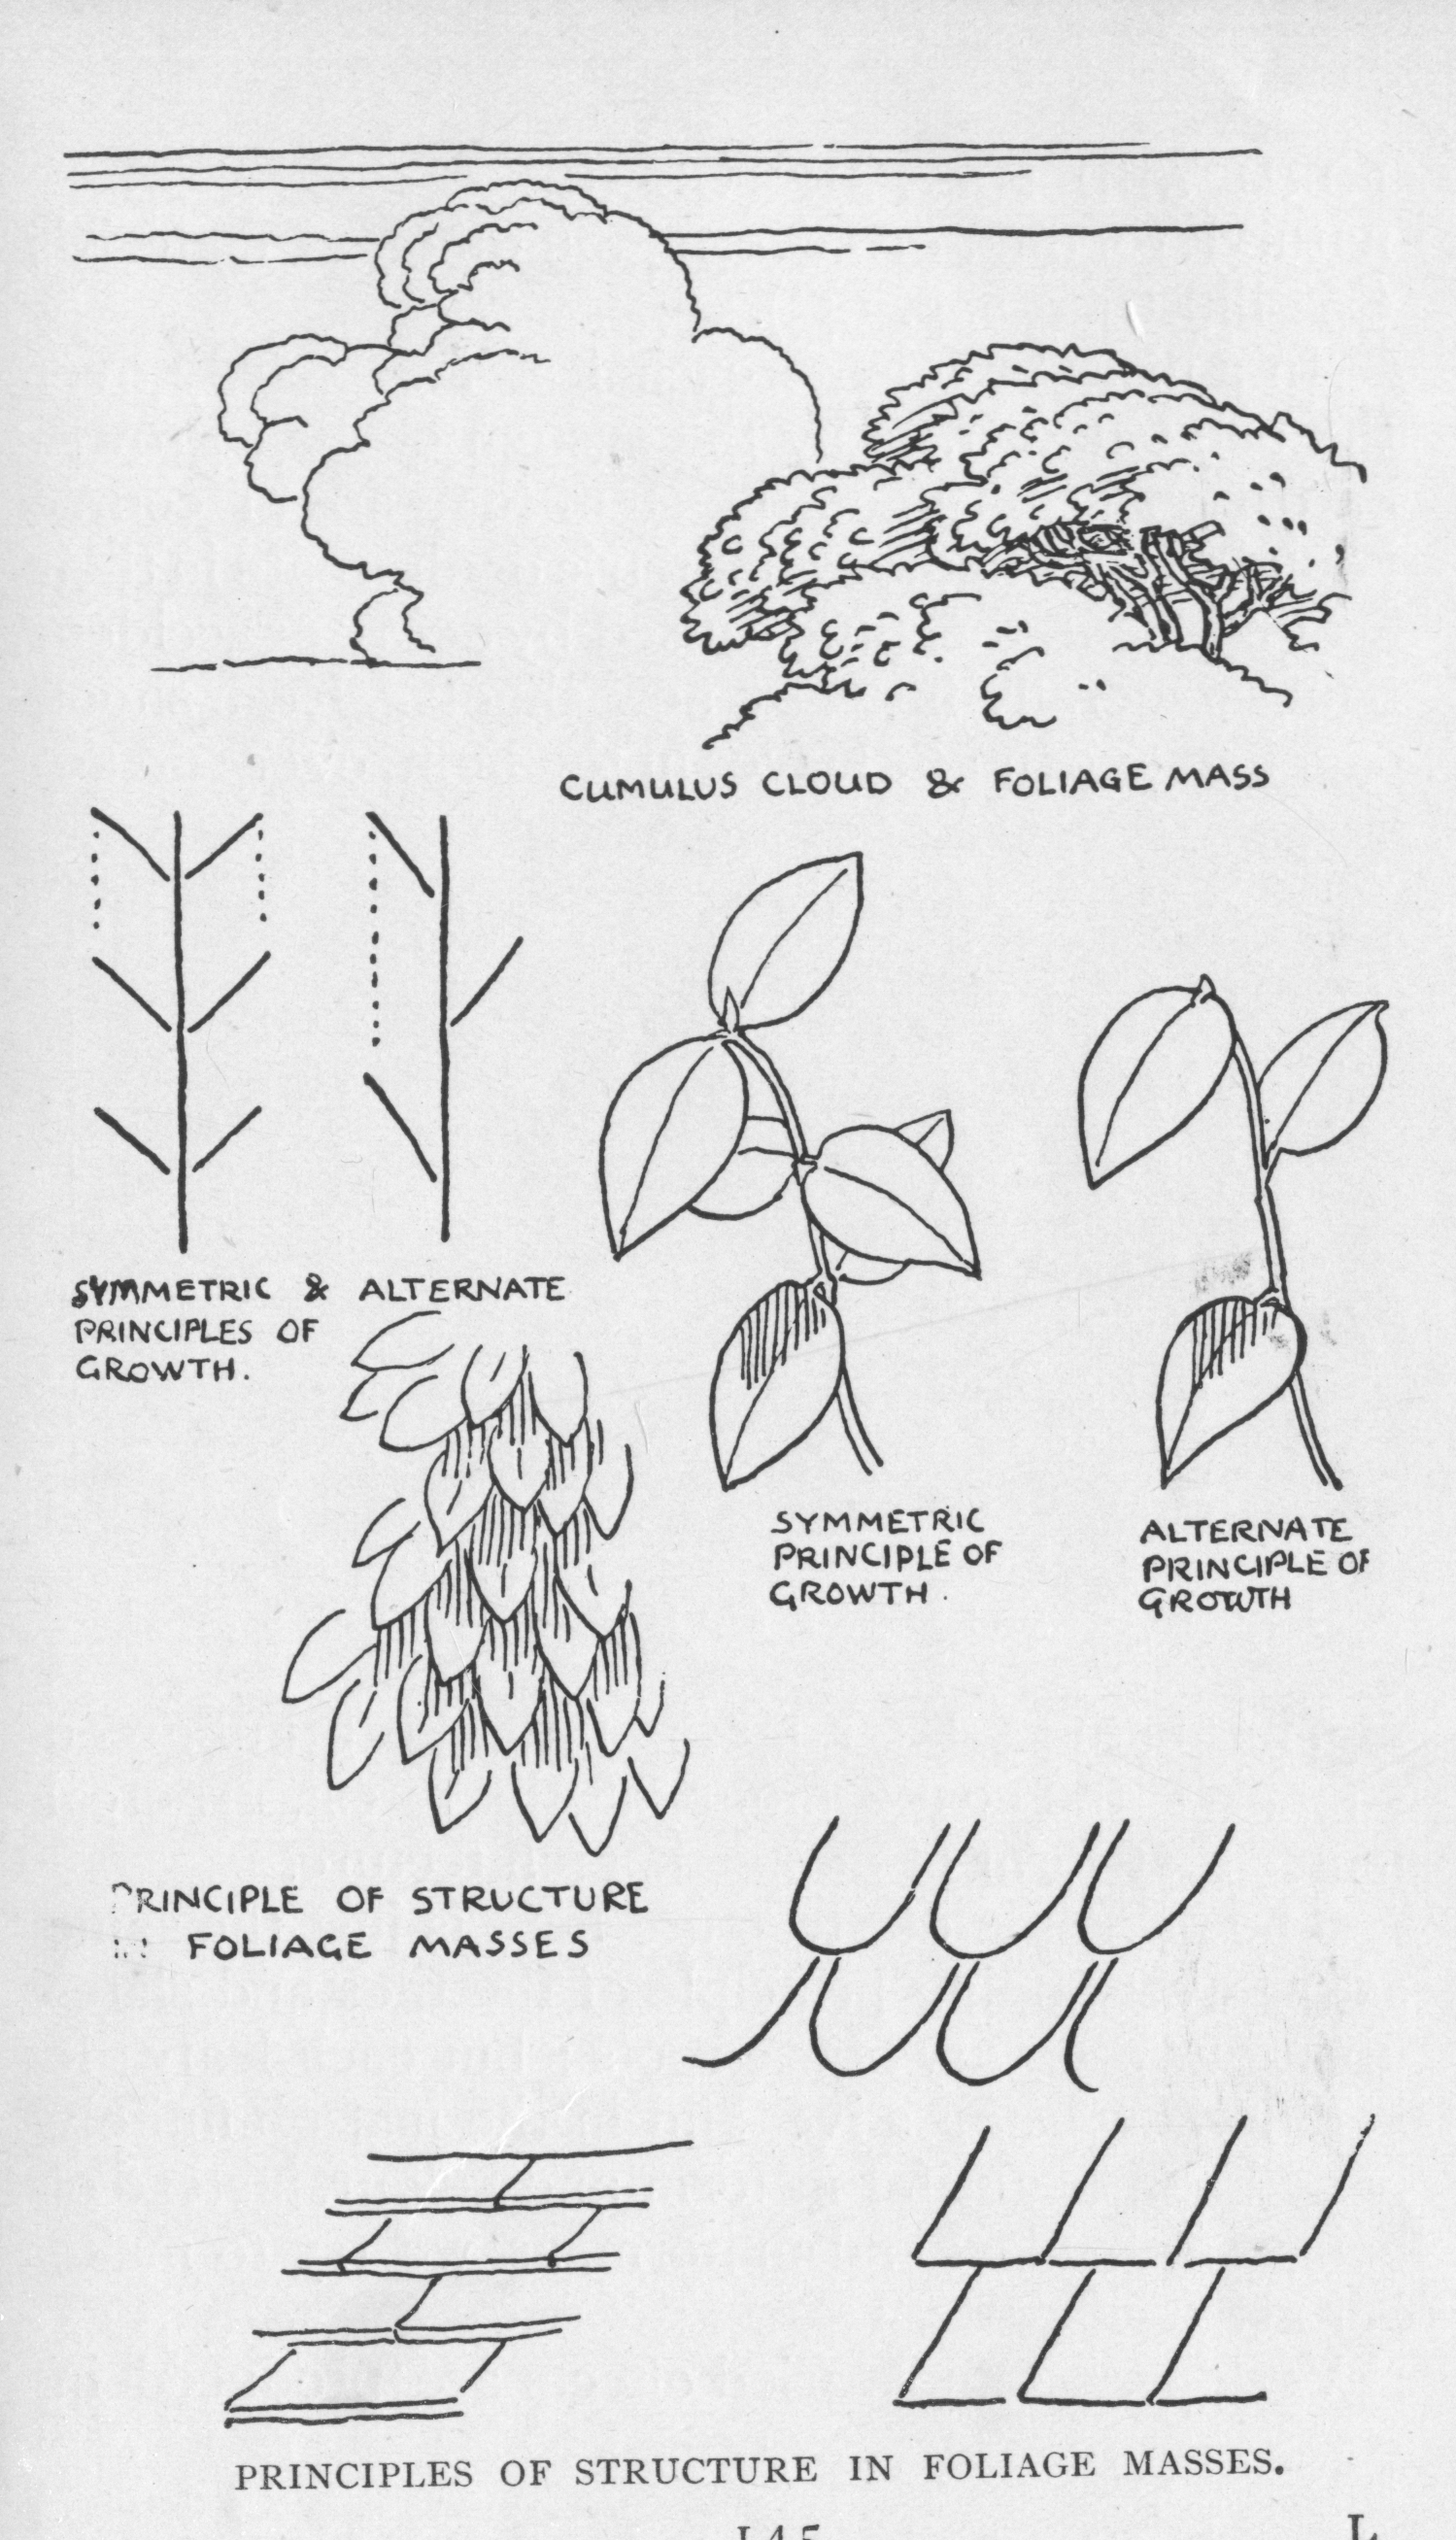 CUMULUS CLOUD & FOLIAGE MASS
SYMMETRIC & ALTERNATE
PRINCIPLES OF
GROWTH.
SYMMETRIC
PRINCIPLE OF
GROWTH.
ALTERNATE
PRINCIPLE OF
GROWTH
PRINCIPLE OF STRUCTURE
IN FOLIAGE MASSES
PRINCIPLES OF STRUCTURE IN FOLIAGE MASSES.
145
L